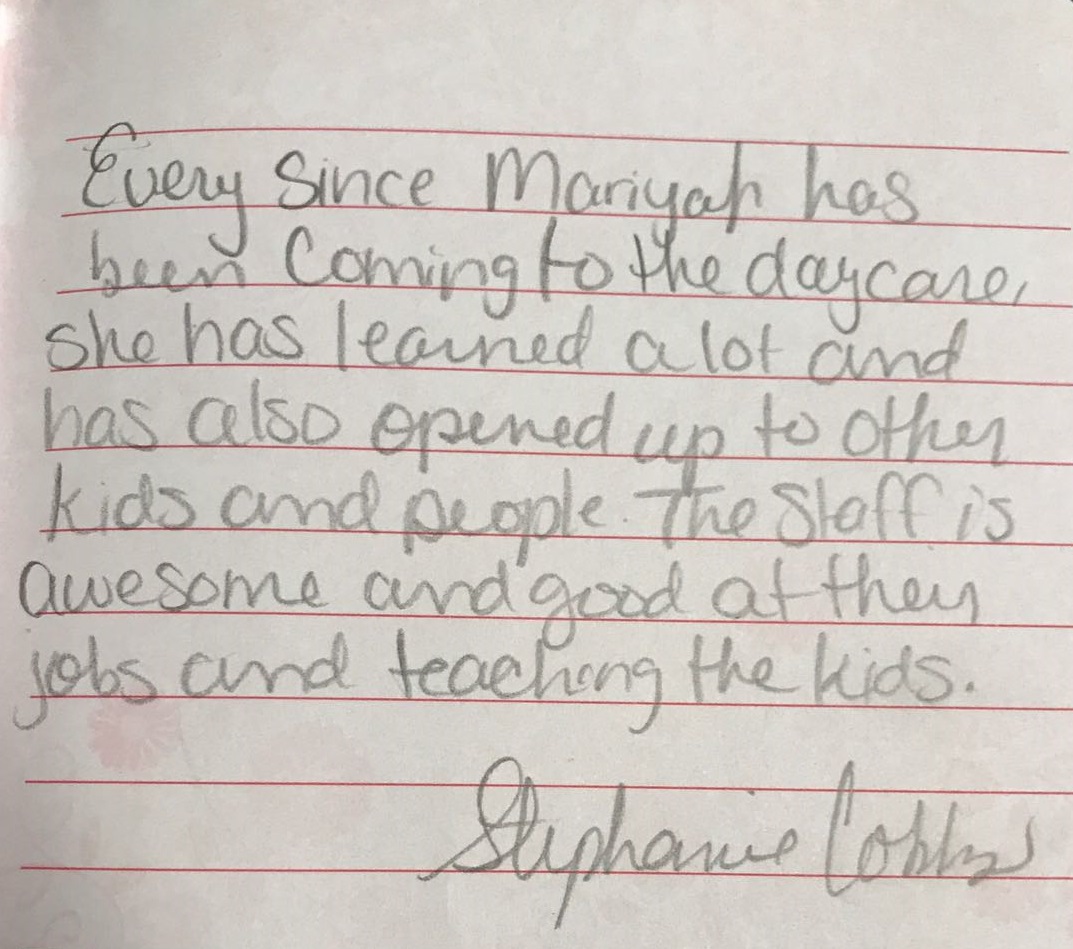 Every Since Mariyah has
been Coming to the daycare,
she has learned a lot and
has also opened up to other
kids and people. The Staff is
awesome and good at they
jobs and teaching the kids.
Stephanie Cobbs